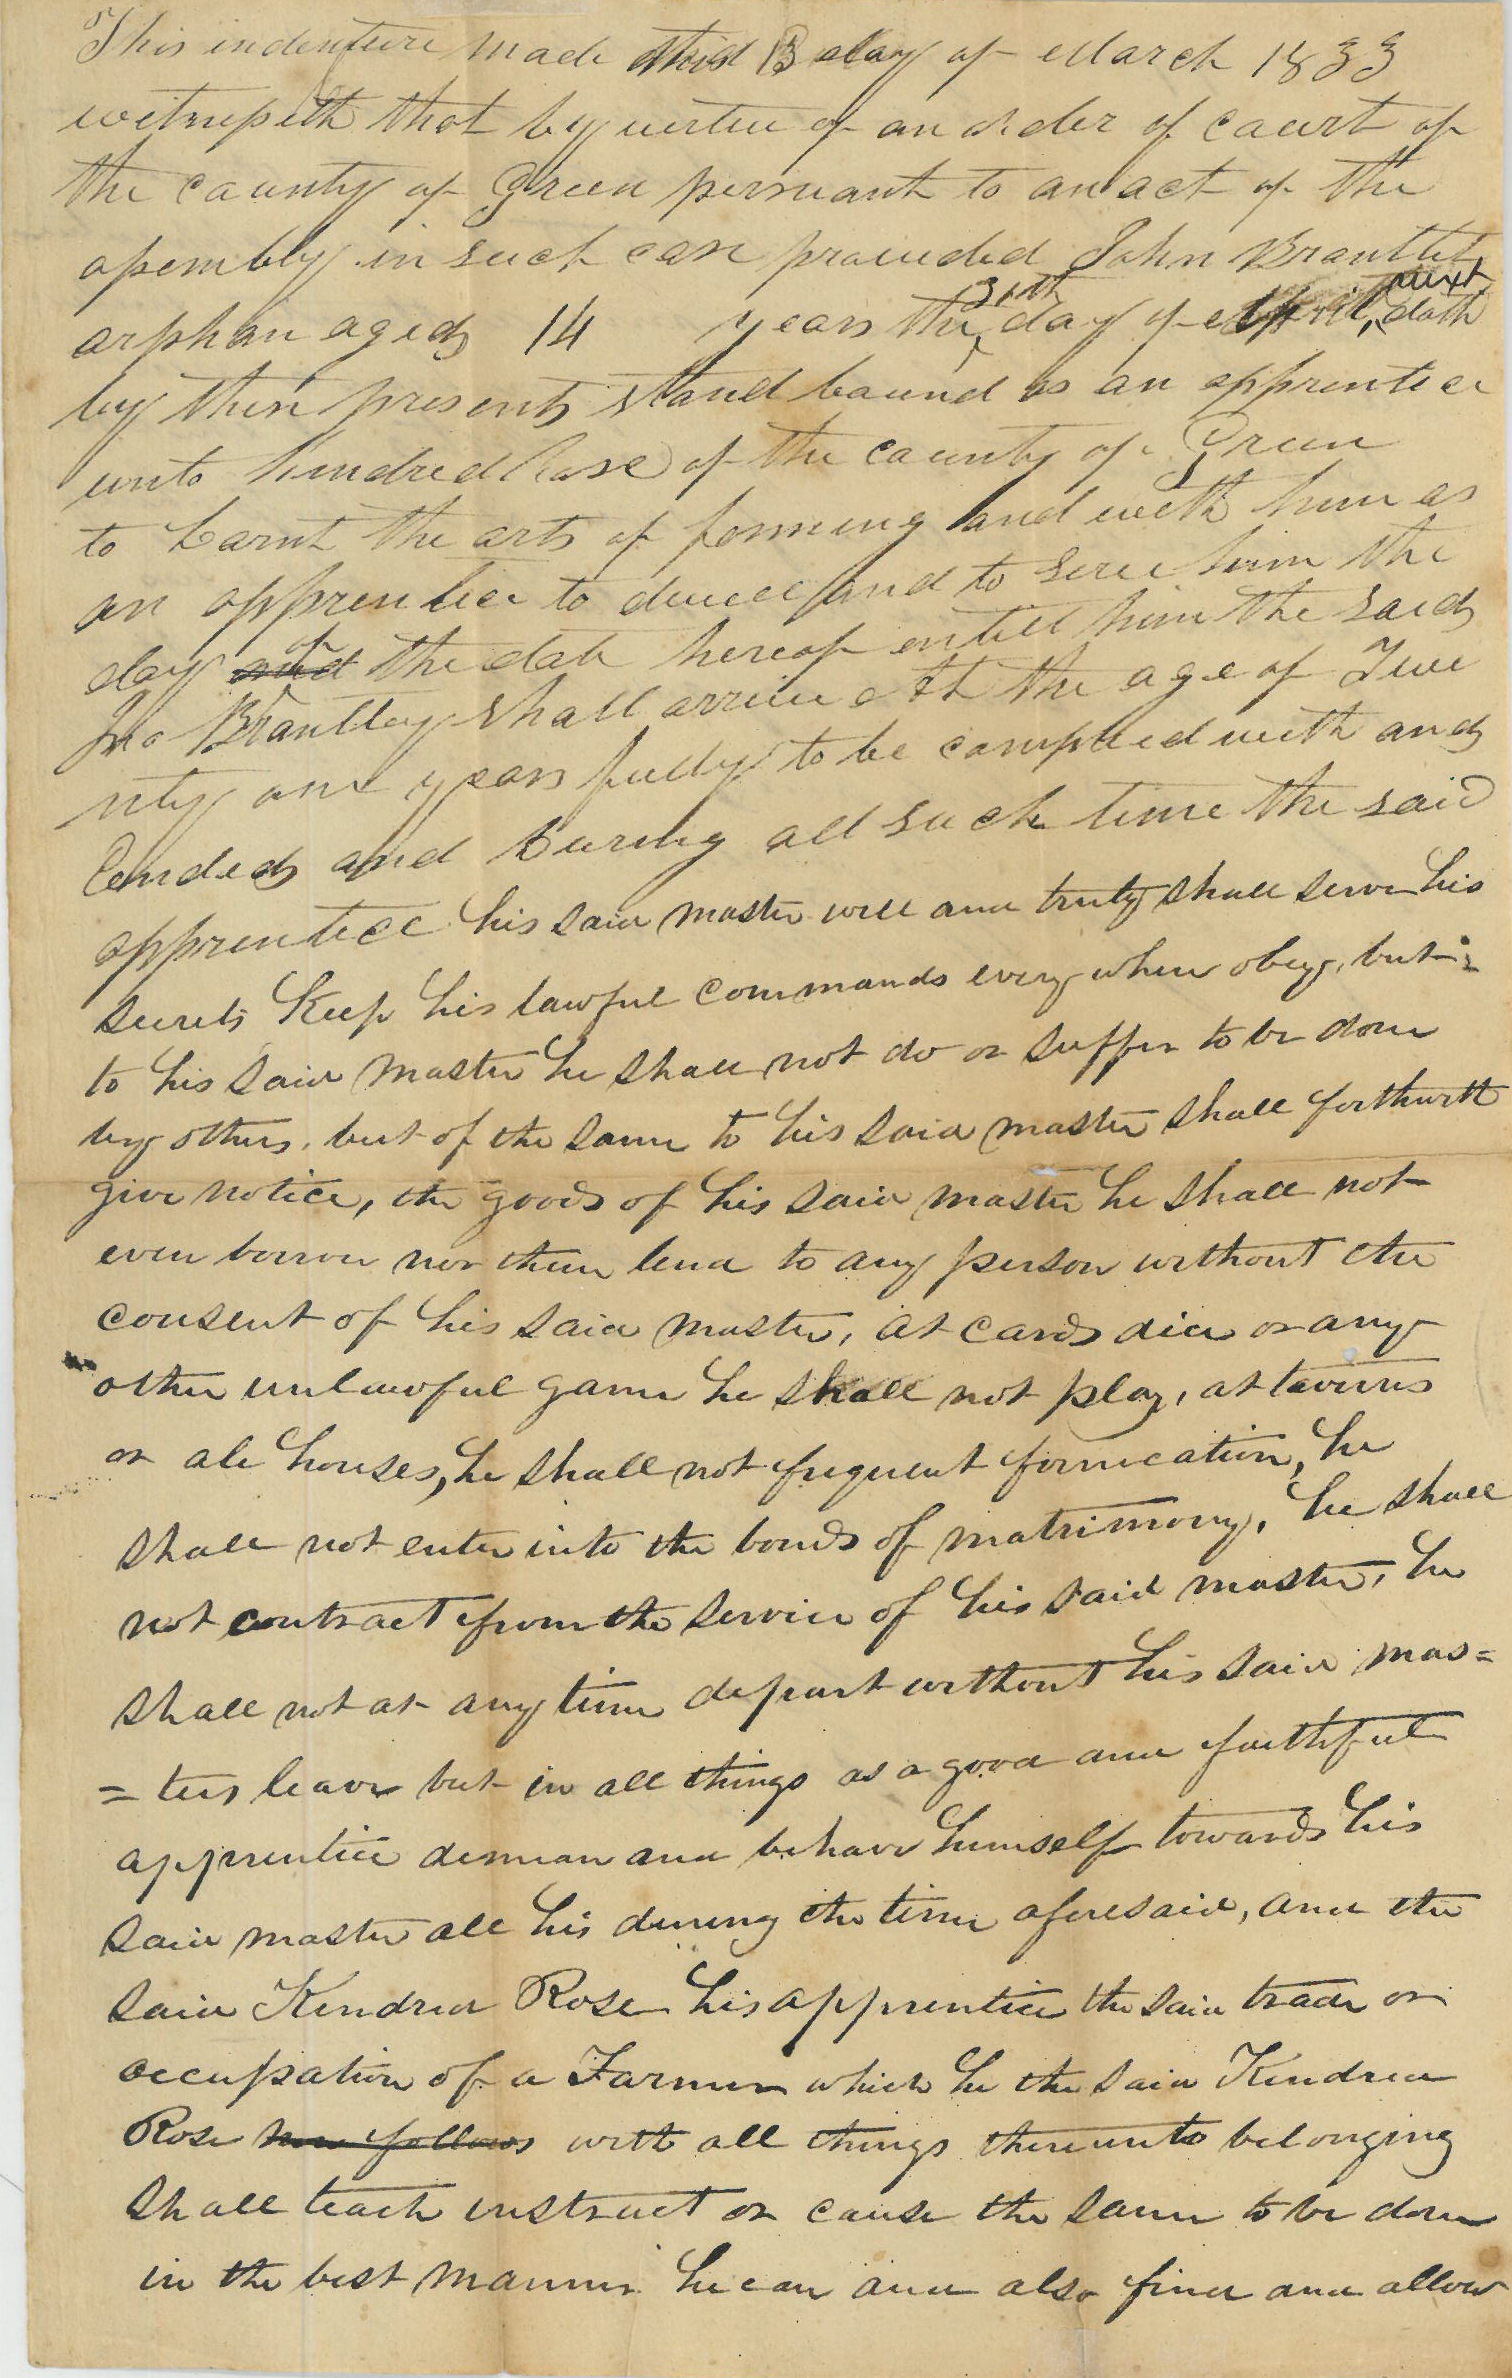 This indenture made this 13 day of March 1833
witnesseth that by vertue of an order of court of
the county of Green persuant to an act of the
assembly in such case provided John Brantlet
orphan aged 14 years the 30th day of April, next doth
by these presents stand bound as an apprentice
unto Kindred Rose of the county of Green
to learnt the arts of forming and with him as
an apprentice to dwell and to serve him the
day and of the date hereof entill him the said
Jno Brantley shall arrive at the age of Twe
nty one years fully to be complied with and
Ended and During all such time the said
apprentice his said master will and truly shall serve his
secrets Keep his lawful commands every where obey, but
to his said master he shall not do or suffer to be done
by others, but of the same to his said master shall forthwith
give notice, the goods of his said master he shall not
even borrow nor them lend to any person without the
consent of his said master, at cards dice or any
other unlawful game he shall not play, at taverns
or ale houses, he shall not frequent fornication, he
shall not enter into the bonds of matrimony, he shall
not contract from the service of his said master, he
shall not at any time depart without his said mas=
=ters leave but in all things as a good and faithful
apprentice demean and behave himself towards his
said master all his during the time aforesaid, and the
said Kendred Rose his apprentice the said trade or
occupation of a Farmer which he the said Kendred
Rose now follows with all things thereunto belonging
shall teach instruct or cause the same to be done
in the best manner he can and also find and allow